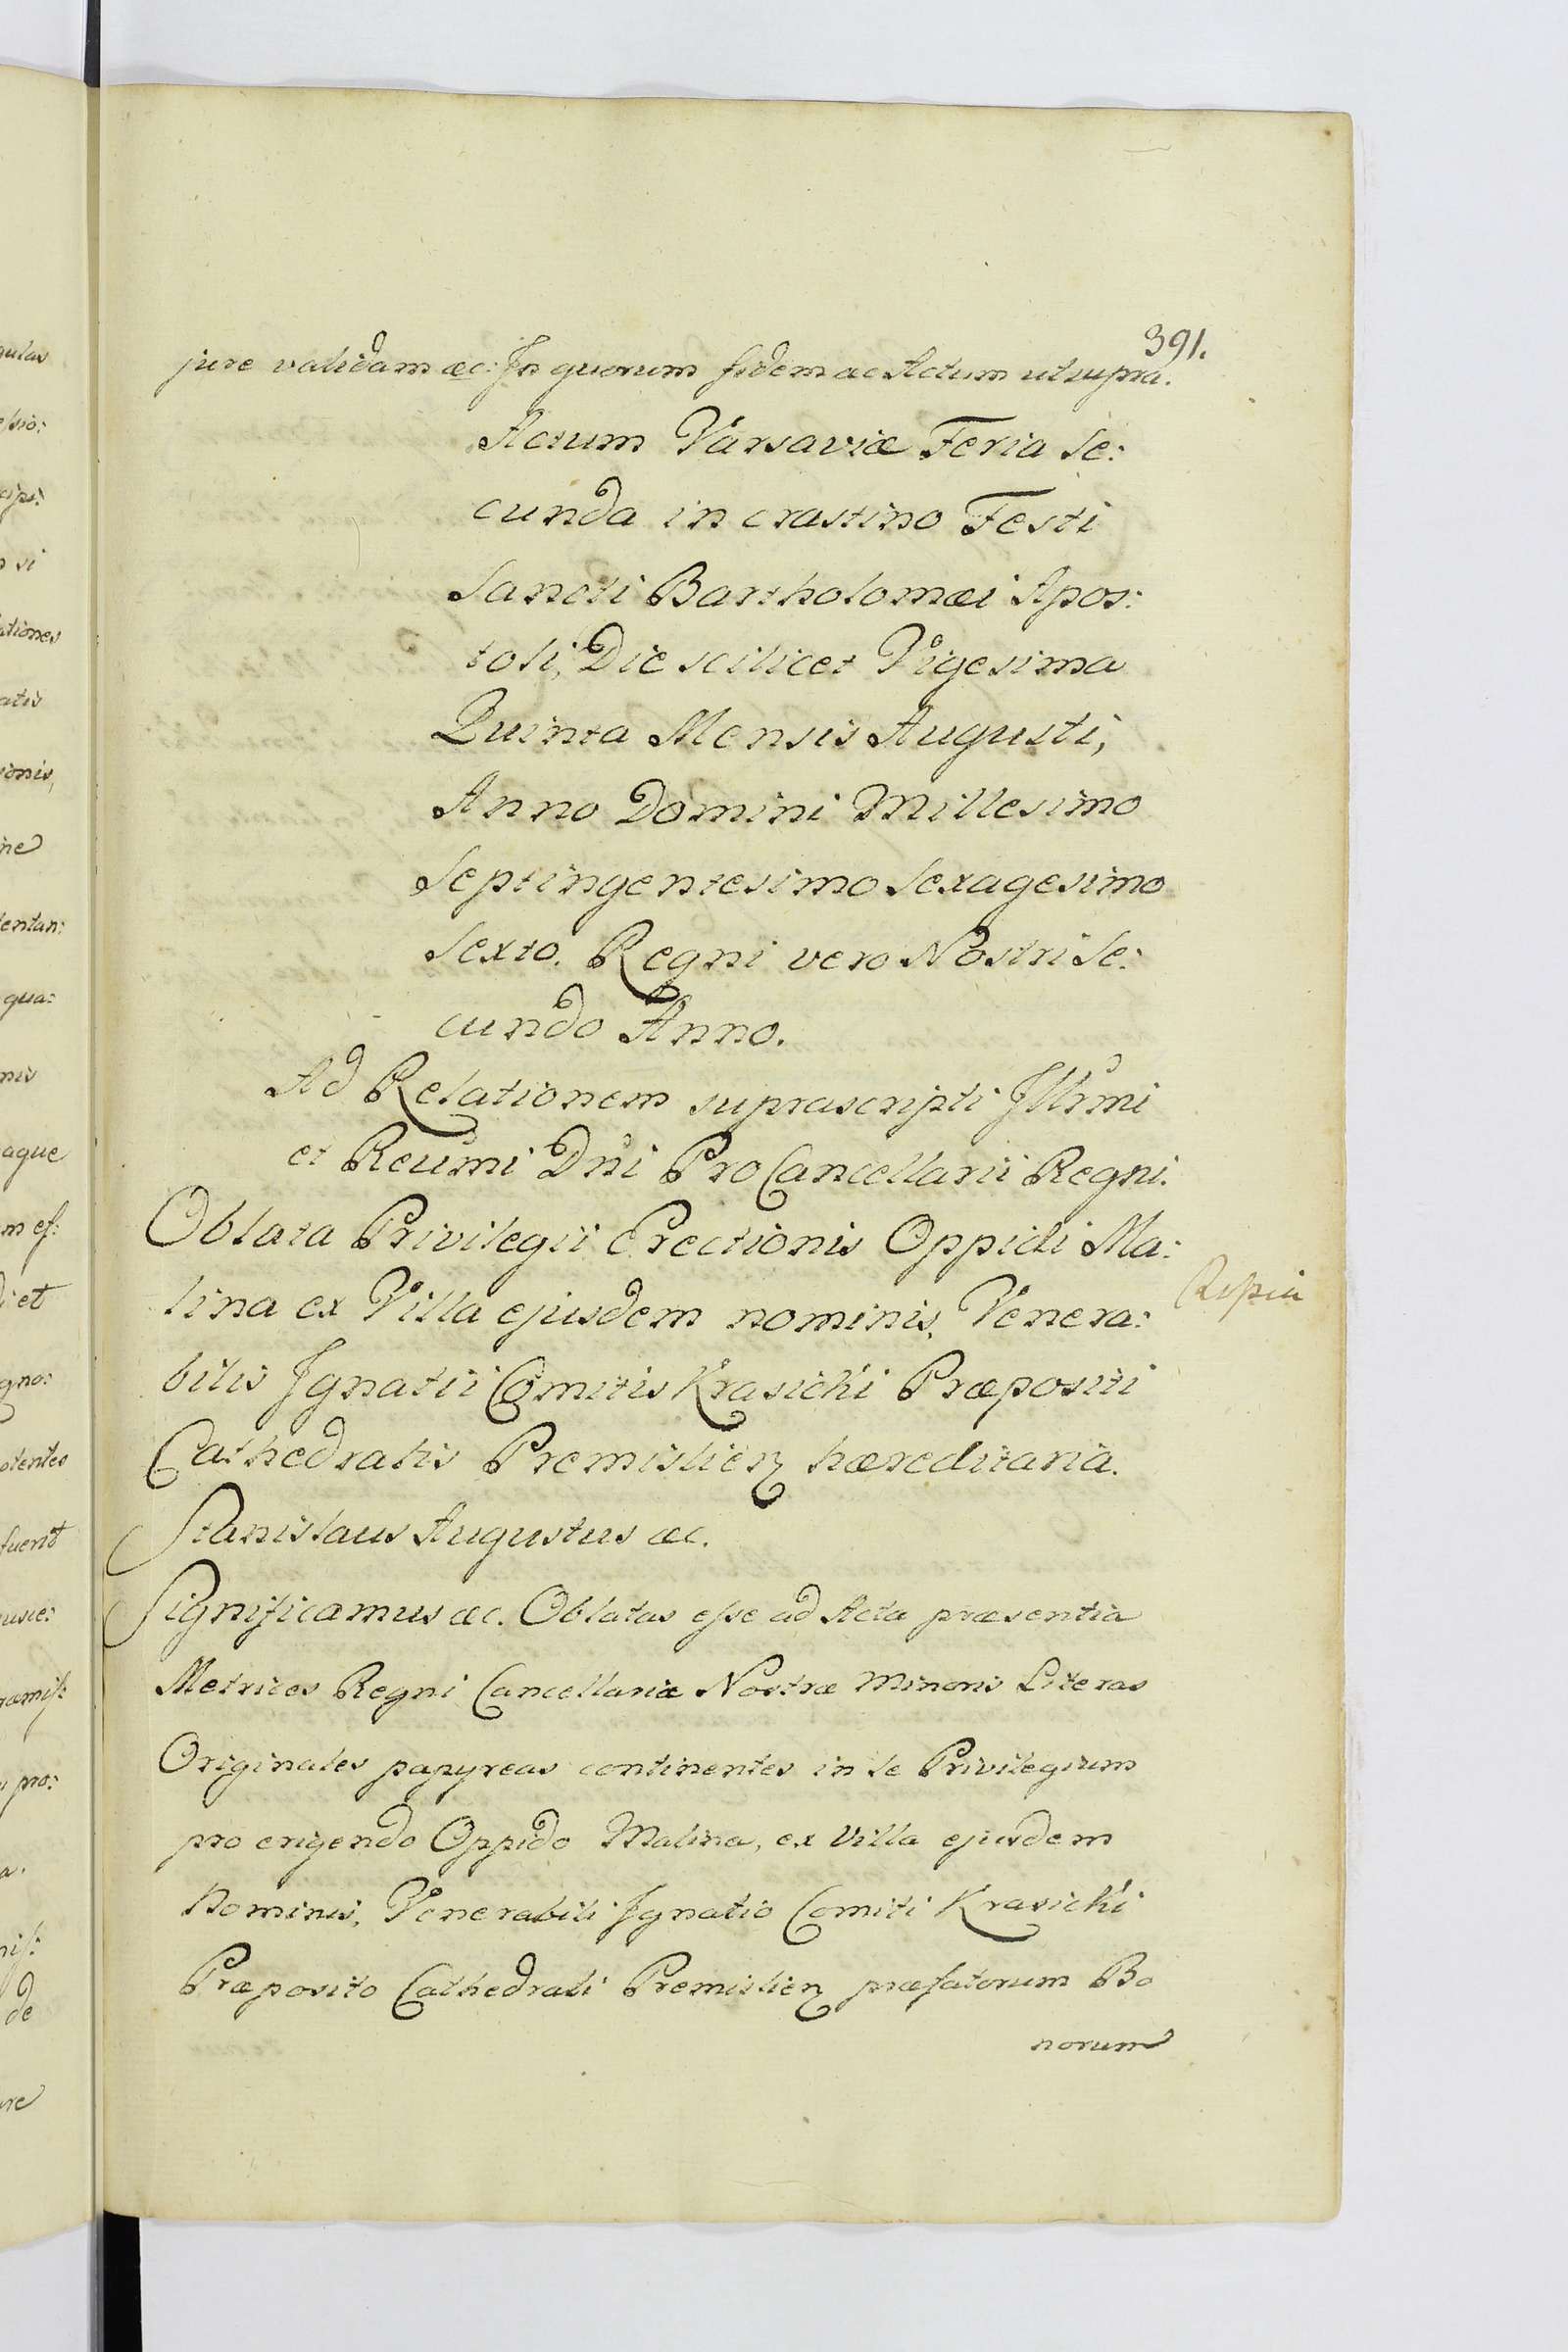 391.
jure validam æc: In quorum fidem ac Actum ut supra.
Actum Varsaviæ Feria Se:
cunda in crastino Festi
Sancti Bartholomæi Apos:
toli, Die scilicet Vigesima
Quinta Mensis Augusti,
Anno Domini Millesimo
Septingentesimo Sexagesimo
Sexto. Regni vero Nostri Se:
cundo Anno.
Ad Relationem suprascripti Illrmi
et Reumi Dni ProCancellarii Regni.
Oblata Privilegii Erectionis Oppidi Ma:
lina ex Villa ejusdem nominis, Venera:
bilis Ignatii Comitis Krasicki Præpositi
Cathedralis Premislien hæreditaria.
Stanislaus Augustus æc.
Significamus æc. Oblatas esse ad Acta præsentia
Metrices Regni Cancellariæ Nostræ Minoris Literas
Originales papyreas continentes in se Privilegium
pro erigendo Oppido Malina, ex Villa ejusdem
Nominis, Venerabili Ignatio Comiti Krasicki
Præposito Cathedrali Premislien præfatorum Bo
norum